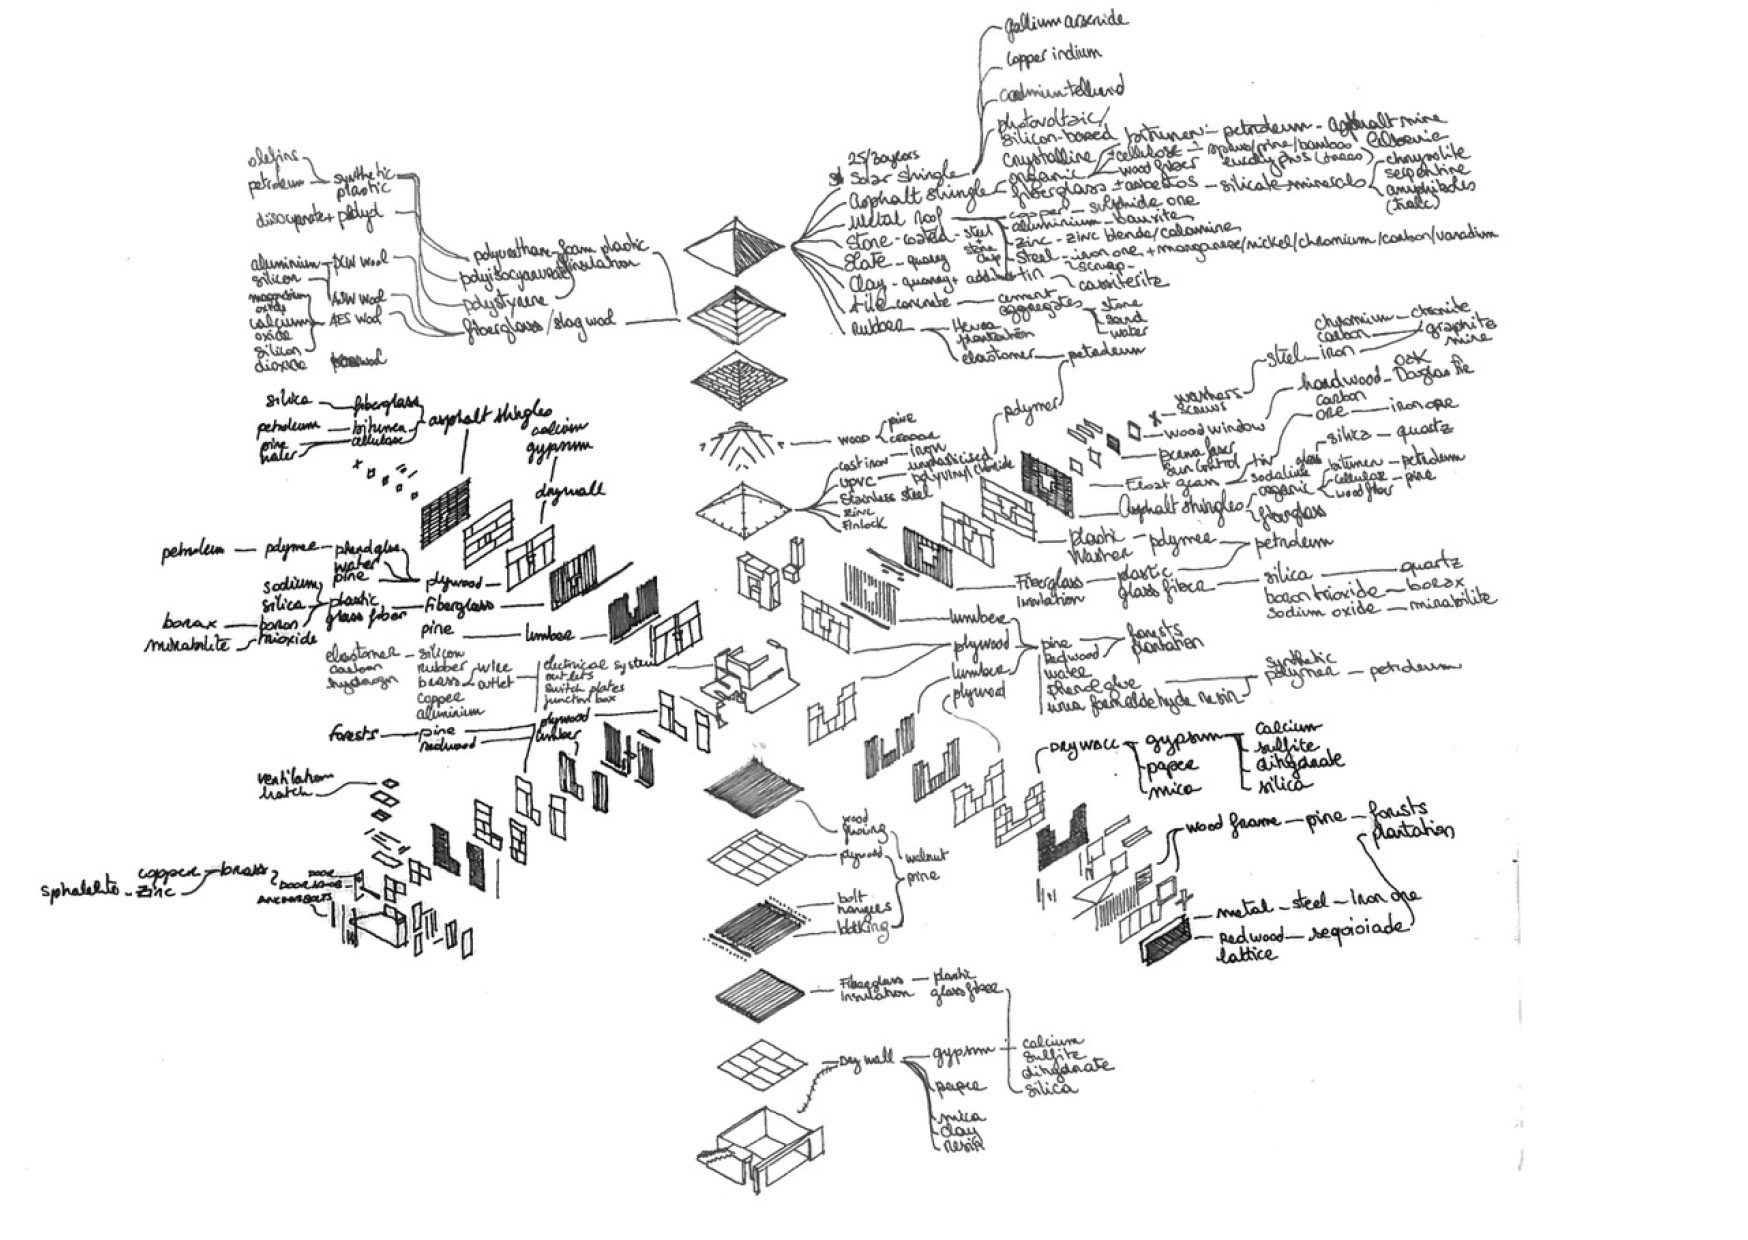 gallium arsenide
copper indium
photovoltaic/
silicon-based
crystalline
25/30years
Solar shingle
bitumen - petroleum - asphalt mine
organic
±cellulose
wood fiber
spruce/pine/bamboo
eucalyptus
Asphalt shingle
fiberglass ± asbestos - silicate minerals
chrysolite
serpentine
amphiboles
(talc)
Metal Roof
copper - sulphide ore
aluminium - bauxite
zinc - zinc blende/calamine
steel - iron ore + manganese/nickel/chromium/carbon/vanadium
scrap
tin - cassiterite
Stone-coated - steel
+
stone
chip
Slate - quarry
Clay - quarry +
tile concrete - cement
aggregates
stone
sand
water
rubber
Hevea
plantation
elastomer - petroleum
olefins
petroleum - synthetic
plastic
polyurethane-foam plastic
insulation
polystyrene
fiberglass/slagwool
aluminium
silicon
magnesium
oxide
calcium
oxide
silicon
dioxide
AES wool
silica - fiberglass
petroleum - bitumen
pine
water
cellulose
asphalt shingles
calcium
gypsum
drywall
wood
pine
cast iron - iron
UPVC - unplasticised
polyvinyl chloride
Stainless steel
Zinc
Finlock
polymer
chromium - chromite
carbon
graphite
mine
steel - iron
washers
screws
hardwood - oak
Douglas Fir
wood window
carbon
ore - iron ore
sun control
silica - quartz
glass
Asphalt shingles
organic
bitumen - petroleum
cellulose
wood fiber - pine
fiberglass
plastic
Washer - polymer - petroleum
Fiberglass
Insulation
plastic
glass fiber - silica - quartz
boron trioxide - borax
sodium oxide - mirabilite
petroleum - polymer - phenol glue
water
pine
plywood
sodium
silica
boron
trioxide
plastic
glass fiber
Fiberglass
borax
mirabilite
pine - lumber
elastomer - silicon
carbon
hydrogen
rubber - wire
brass - outlet
copper
aluminium
electrical system
outlets
switch plates
junction box
forests - pine
redwood
plywood
lumber
lumber
plywood
lumber
plywood
pine
Redwood
water
phenol glue
urea formaldehyde resin
forests
plantation
synthetic
polymer - petroleum
DRYWALL - gypsum
paper
mica
calcium
sulfite
dihydrate
silica
wood frame - pine - forests
plantation
metal - steel - iron ore
Redwood
lattice
ventilation
hatch
sphalelite - zinc
copper - brass
DOOR
ANCHOR BOLTS
wood
plywood
walnut
pine
bolt
hangers
blocking
Fiberglass
Insulation
plastic
glass fiber
Dry wall - gypsum
paper
mica
clay
resin
calcium
sulfite
dihydrate
silica